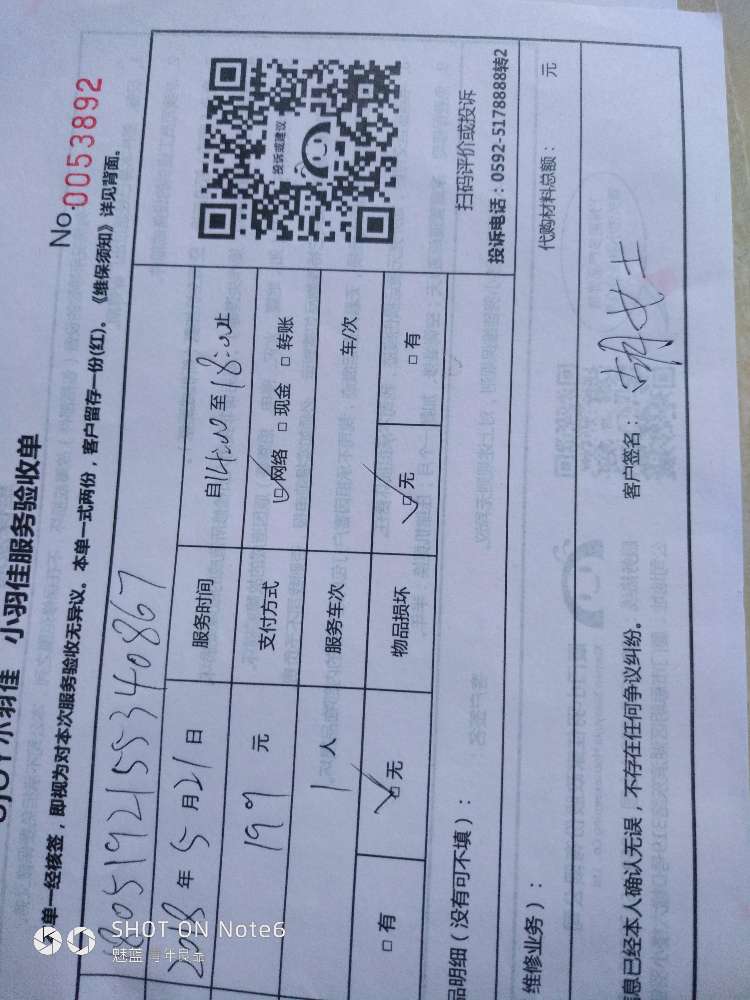 小羽佳 小羽佳服务验收单
No.0053892
单一经核签，即视为对本次服务验收无异议。本单一式两份，客户留存一份(红)。《维保须知》详见背面。
1805192155340867
2018年5月21日 服务时间 自14:00至18:00止
199 元 支付方式 □网络 □现金 □转账
1 人 服务车次 车/次
□有 □无 物品损坏 □无 □有
投诉或建议
扫码评价或投诉
投诉电话：0592-5178888转2
品明细（没有可不填）：
维修业务）： 代购材料总额： 元
息已经本人确认无误，不存在任何争议纠纷。 客户签名：胡女士
SHOT ON Note6
魅蓝